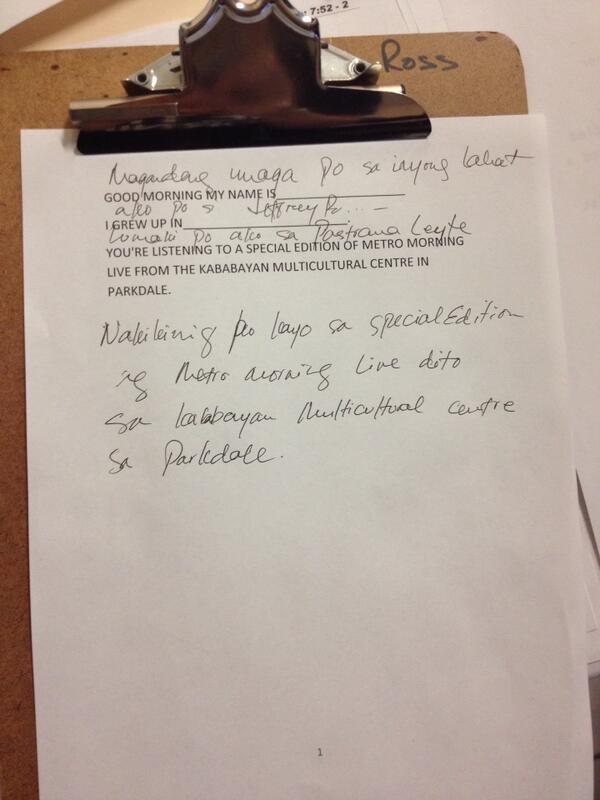 7:52 - 2
Ross
Magandang umaga po sa inyong lahat
GOOD MORNING MY NAME IS
ako po si Jeffrey
I GREW UP IN
Lumaki po ako sa Pastrana Leyte
YOU'RE LISTENING TO A SPECIAL EDITION OF METRO MORNING
LIVE FROM THE KABABAYAN MULTICULTURAL CENTRE IN
PARKDALE.
Nakikinig po kayo sa special Edition
ng Metro morning Live dito
sa kababayan Multicultural centre
sa Parkdale.
1